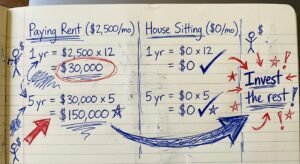 Paying Rent ($2,500/mo)
1 yr = $2,500 x 12
= $30,000
5 yr = $30,000 x 5
= $150,000
House Sitting ($0/mo)
1 yr = $0 x 12
= $0
5 yr = $0 x 5
= $0
Invest
the rest!